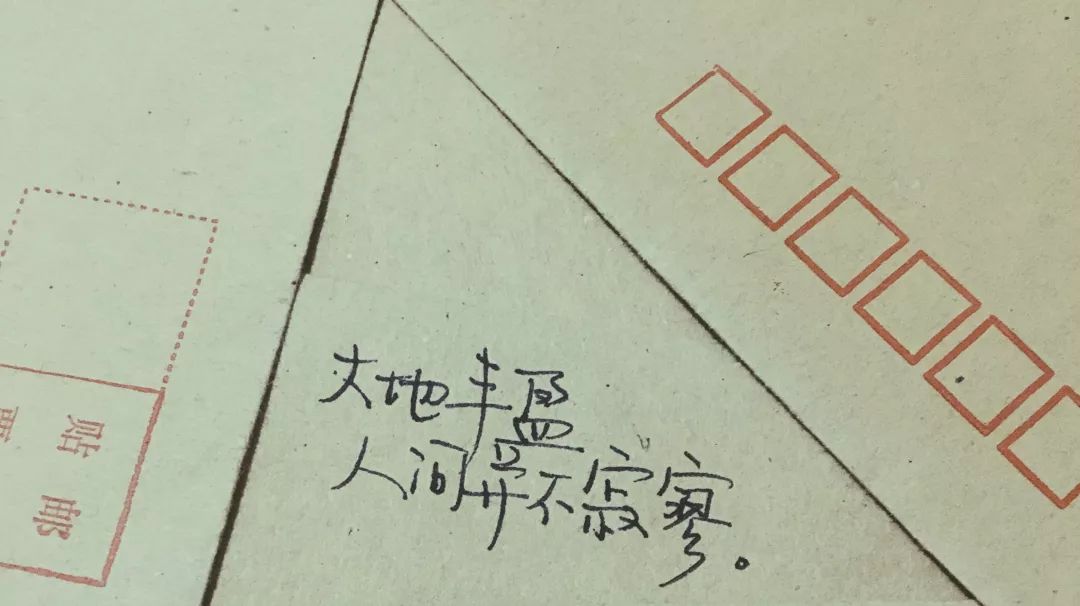 大地丰盈
人间并不寂寥。
贴邮
票